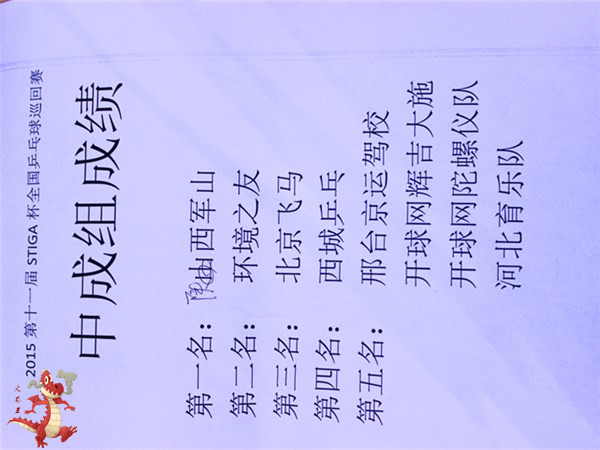 2015 第十一届 STIGA 杯全国乒乓球巡回赛
中成组成绩
第一名：山西军山
第二名：环境之友
第三名：北京飞马
第四名：西城乒乓
第五名：邢台京运驾校
开球网辉吉大施
开球网陀螺仪队
河北育乐队